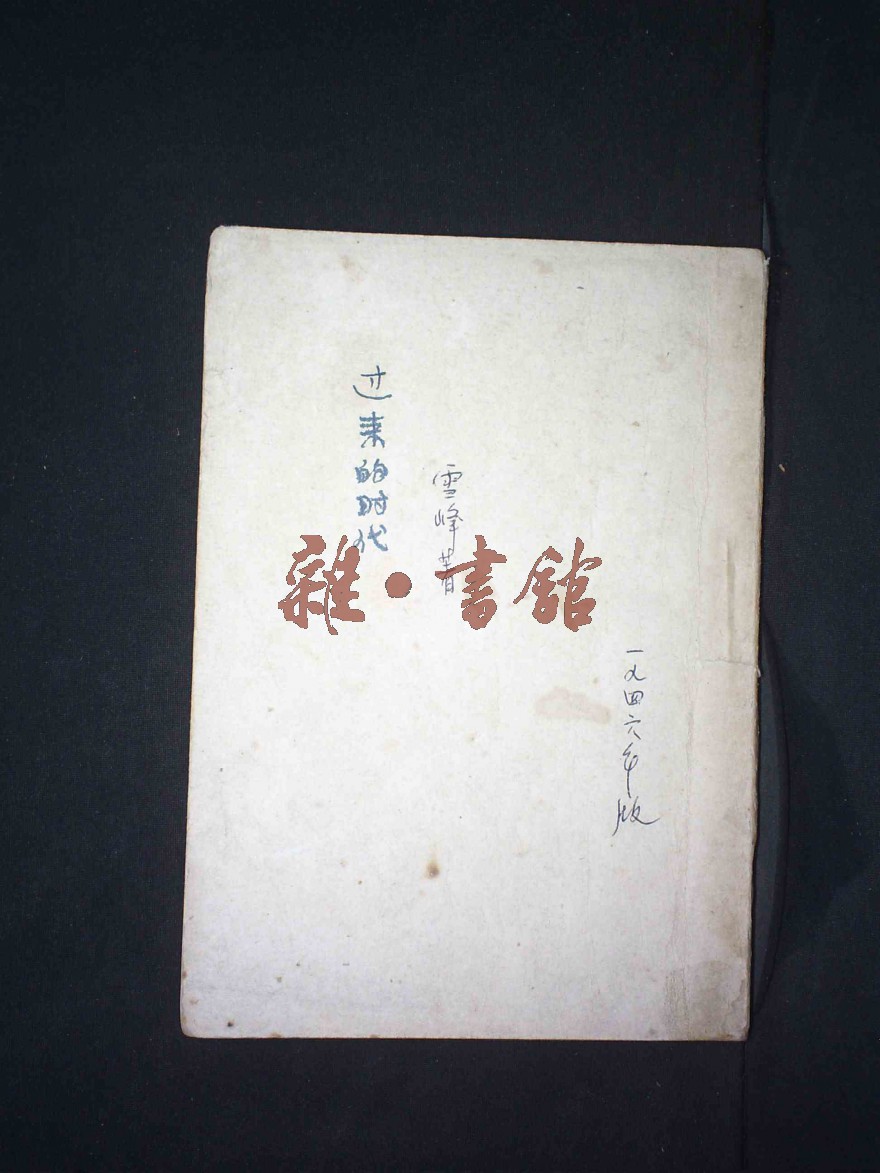 过来的时代
雪峰著
一九四六年版
雜·書館